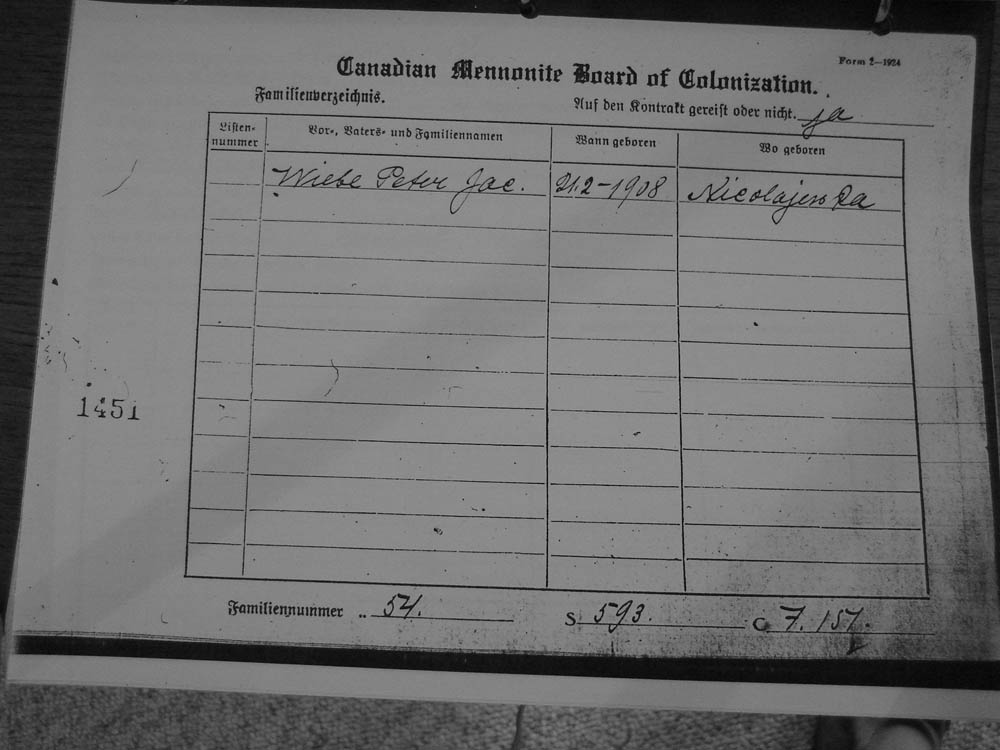 Form 2—1924
Canadian Mennonite Board of Colonization.
Familienverzeichnis.
Auf den Kontrakt gereist oder nicht. ja
Listennummer
Vor-, Vaters- und Familiennamen
Wann geboren
Wo geboren
Wiebe Peter Jac. 21.2-1908 Nicolajewka
1451
Familiennummer .. 54. S 593. C 7.157.